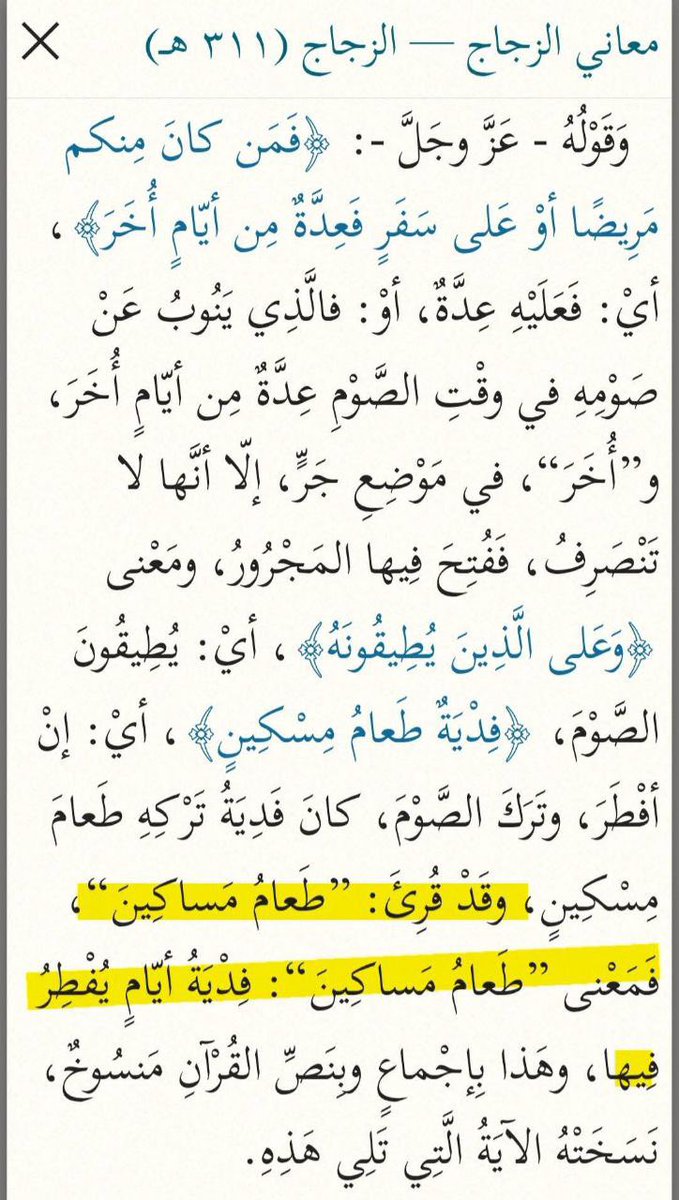 معاني الزجاج — الزجاج (٣١١ هـ)
وَقَوْلُهُ - عَزَّ وجَلَّ -: ﴿فَمَن كانَ مِنكم
مَرِيضًا أوْ عَلى سَفَرٍ فَعِدَّةٌ مِن أيّامٍ أُخَرَ﴾ ،
أيْ: فَعَلَيْهِ عِدَّةٌ، أوْ: فالَّذِي يَنُوبُ عَنْ
صَوْمِهِ في وقْتِ الصَّوْمِ عِدَّةٌ مِن أيّامٍ أُخَرَ،
و”أُخَرَ“، في مَوْضِعِ جَرٍّ، إلّا أنَّها لا
تَنْصَرِفُ، فَفُتِحَ فِيها المَجْرُورُ، ومَعْنى
﴿وَعَلى الَّذِينَ يُطِيقُونَهُ﴾ ، أيْ: يُطِيقُونَ
الصَّوْمَ، ﴿فِدْيَةٌ طَعامُ مِسْكِينٍ﴾ ، أيْ: إنْ
أفْطَرَ، وتَرَكَ الصَّوْمَ، كانَ فَدِيَةُ تَرْكِهِ طَعامَ
مِسْكِينٍ، وقَدْ قُرِئَ: ”طَعامُ مَساكِينَ“،
فَمَعْنى ”طَعامُ مَساكِينَ“: فِدْيَةُ أيّامٍ يُفْطِرُ
فِيها، وهَذا بِإجْماعٍ وبِنَصِّ القُرْآنِ مَنسُوخٌ،
نَسَخَتْهُ الآيَةُ الَّتِي تَلِي هَذِهِ.